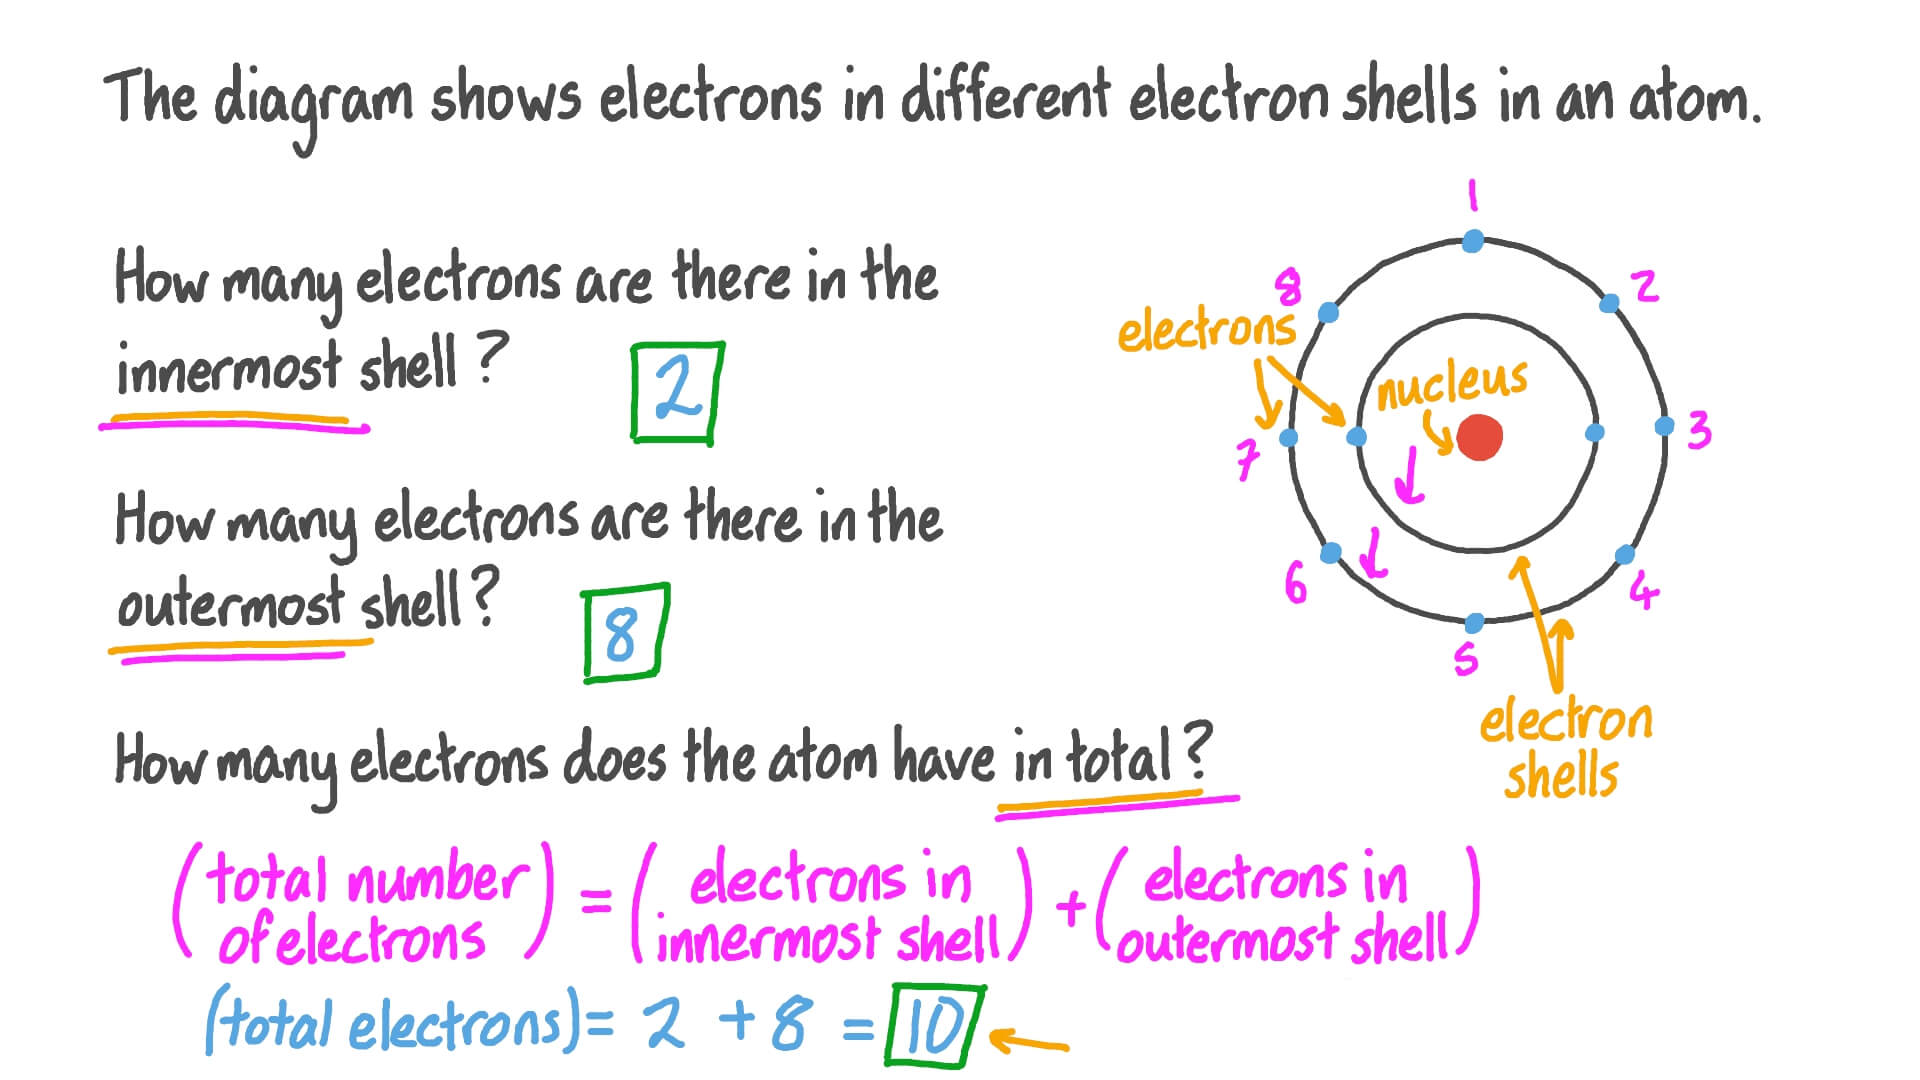 The diagram shows electrons in different electron shells in an atom.
How many electrons are there in the
innermost shell?
2
How many electrons are there in the
outermost shell?
8
How many electrons does the atom have in total?
(total number of electrons) = (electrons in innermost shell) + (electrons in outermost shell)
(total electrons) = 2 + 8 = 10
1
2
3
4
5
6
7
8
electrons
nucleus
electron
shells